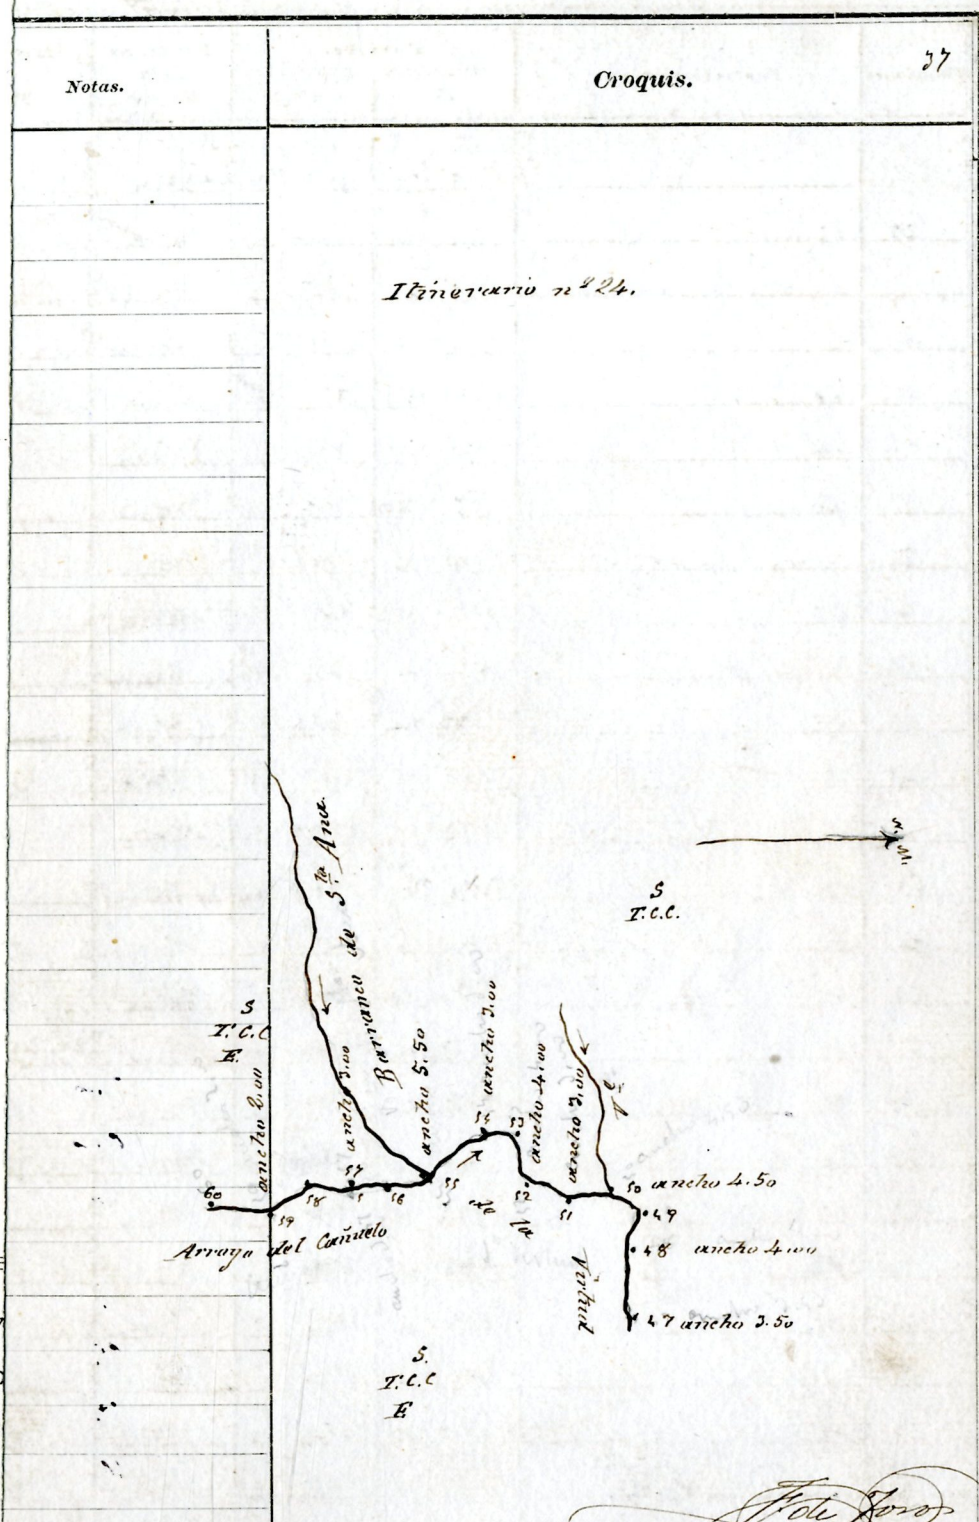 37
Notas.
Croquis.
Itinerario nº 24.
N. M.
S
T.C.C.
Barranco de S.ta Ana.
S
T.C.C
E.
ancho 2.00
ancho 3.00
ancho 5.50
ancho 3.00
ancho 4.00
ancho 3.00
60
59
58
57
56
55
54
53
52
51
50 ancho 4.50
49
48 ancho 4.00
47 ancho 3.50
Arroyo del Cañuelo
S.
T.C.C
E